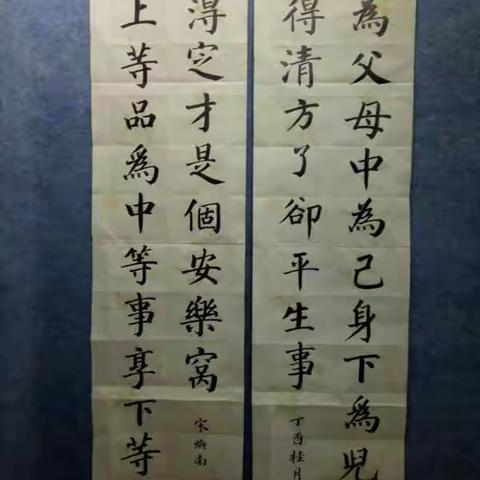 為父母中為己身下爲兒
得清方了卻平生事
丁酉桂月
上等品爲中等事享下等
得定才是個安樂窩
宋 南